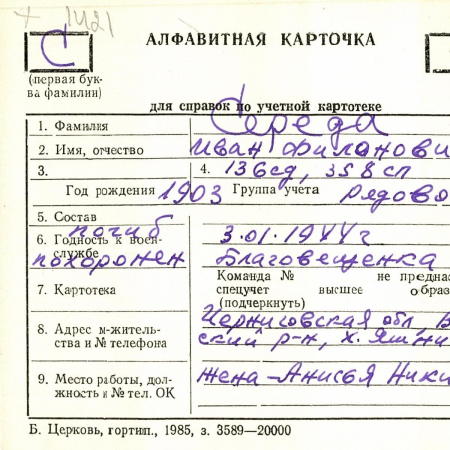 1421
С
АЛФАВИТНАЯ КАРТОЧКА
(первая бук-
ва фамилии)
для справок по учетной картотеке
1. Фамилия Середа
2. Имя, отчество Иван Филанови
3. 4. 136сд, 358сп
Год рождения 1903 Группа учета рядово
5. Состав погиб 3.01.1944г
6. Годность к воен-
службе похоронен Благовещенка
Команда № не предназ
7. Картотека спецучет высшее образ
(подчеркнуть)
8. Адрес м-житель-
ства и № телефона Черниговская обл.
ский р-н, х.
9. Место работы, дол-
жность и № тел. ОК жена - Анисья Ники
Б. Церковь, гортип., 1985, з. 3589—20000